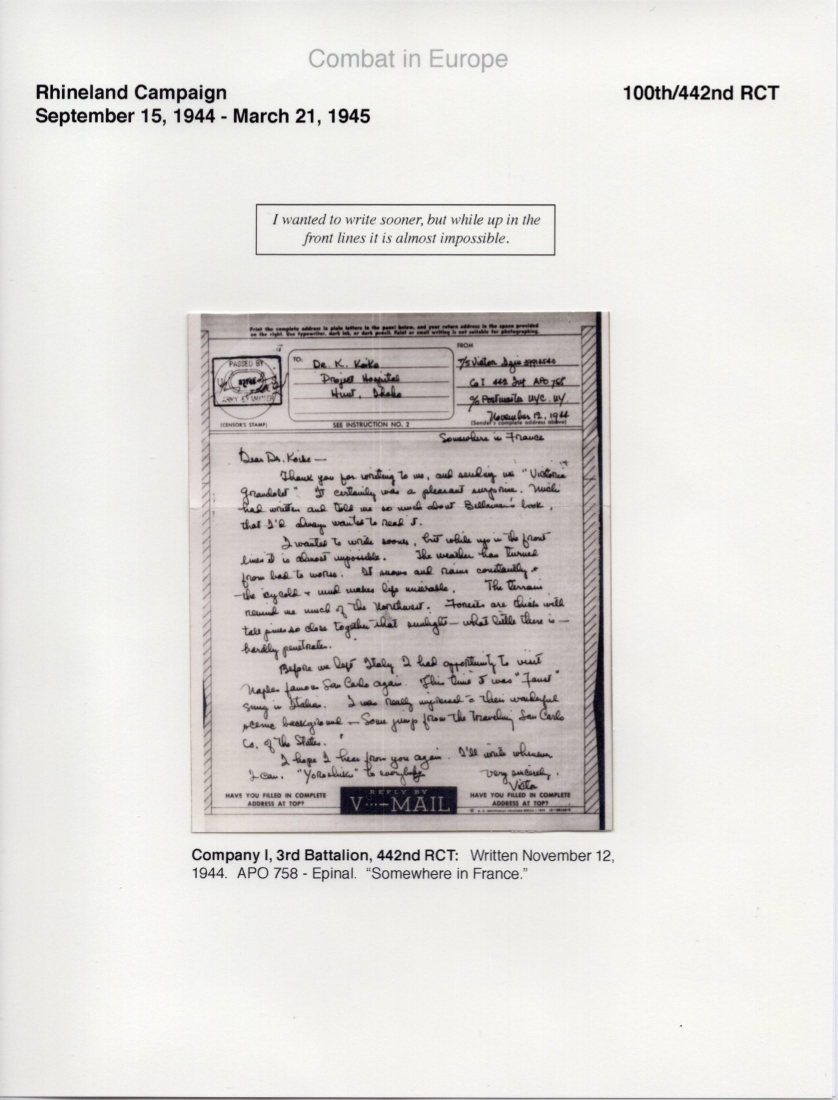 Combat in Europe
Rhineland Campaign
100th/442nd RCT
September 15, 1944 - March 21, 1945
I wanted to write sooner, but while up in the
front lines it is almost impossible.
Print the complete address in plain letters in the panel below, and your return address in the space provided
on the right. Use typewriter, dark ink, or dark pencil. Faint or small writing is not suitable for photographing.
PASSED BY
ARMY EXAMINER
(CENSOR'S STAMP)
TO:
Dr. K. Koike
Project Hospital
Hunt, Idaho
SEE INSTRUCTION NO. 2
FROM
T/5 Victor
Co I 442 Inf APO 758
c/o Postmaster NYC. NY
November 12, 1944
(Sender's complete address above)
Somewhere in France
Dear Dr. Koike —
Thank you for writing to me, and sending me "Victoria
Grandolet" It certainly was a pleasant surprise.
had written and told me so much about Bellamann's book,
that I'd always wanted to read it.
I wanted to write sooner, but while up in the front
lines it is almost impossible. The weather has turned
from bad to worse. It snows and rains constantly &
the icy cold & mud makes life miserable. The terrain
remind me much of the Northwest. Forests are thick with
tall pines so close together that sunlight — what little there is —
hardly penetrate.
Before we left Italy I had opportunity to visit
Naples famous San Carlo again. This time it was "Faust"
sung in Italian. I was really impressed o their wonderful
scenic background — Some jump from the traveling San Carlo
Co. of the States.
I hope I hear from you again. I'll write whenever
I can. "Yoroshiku" to everybody
Very sincerely,
Victor
HAVE YOU FILLED IN COMPLETE
ADDRESS AT TOP?
REPLY BY
V···—MAIL
HAVE YOU FILLED IN COMPLETE
ADDRESS AT TOP?
Company I, 3rd Battalion, 442nd RCT: Written November 12,
1944. APO 758 - Epinal. “Somewhere in France.”